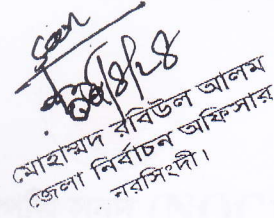 Seen
মোহাম্মদ রবিউল আলম
জেলা নির্বাচন অফিসার
নরসিংদী।